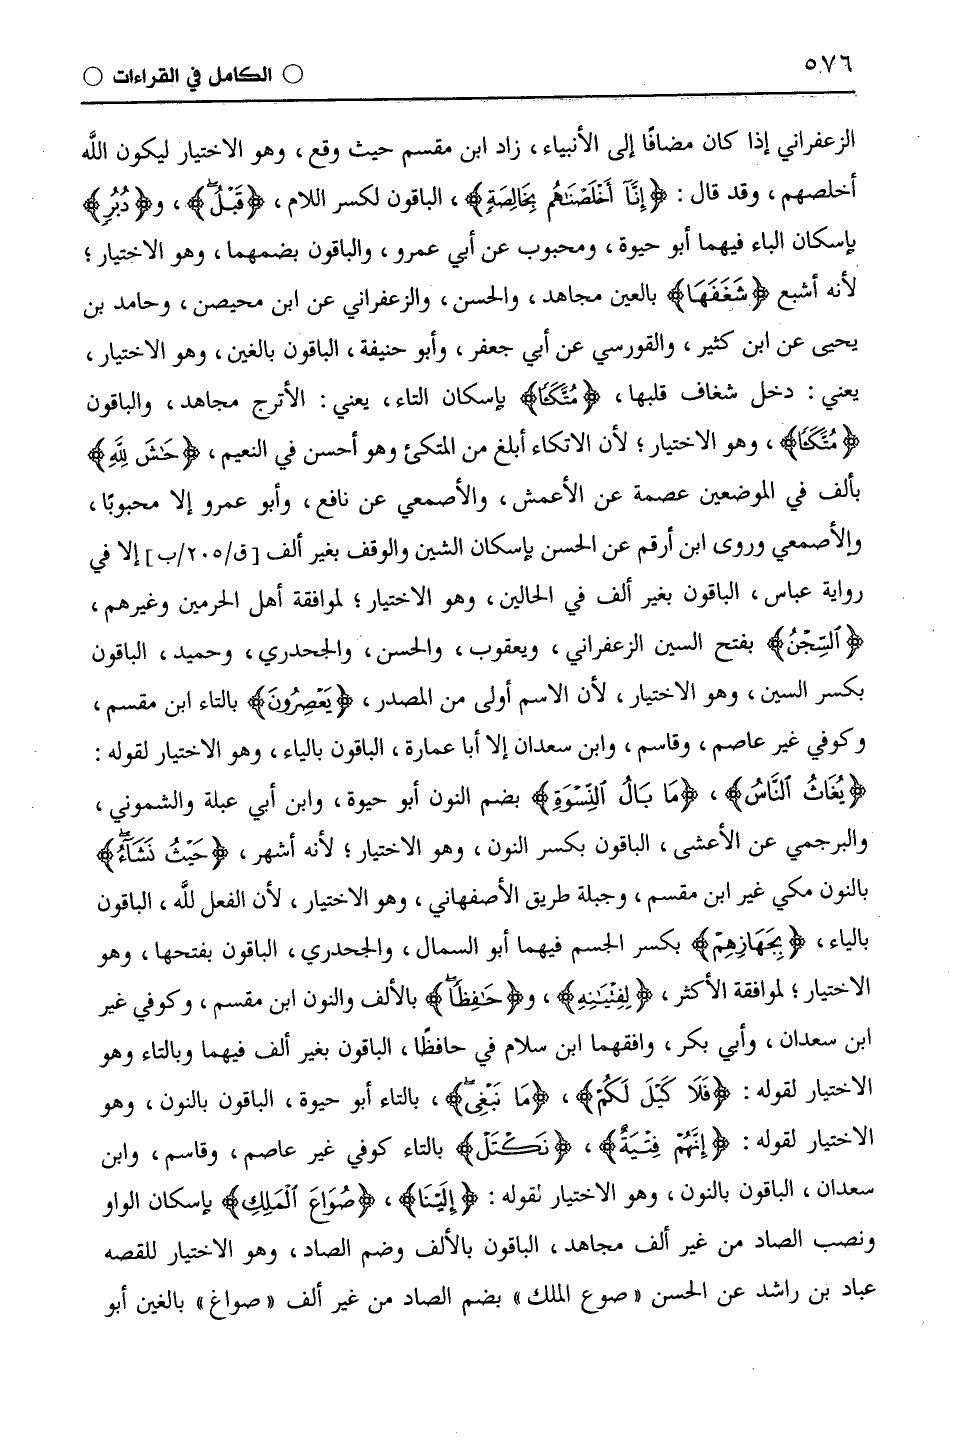 ○ الكامل في القراءات ○ ٥٧٦
الزعفراني إذا كان مضافًا إلى الأنبياء، زاد ابن مقسم حيث وقع، وهو الاختيار ليكون الله
أخلصهم، وقد قال: ﴿إِنَّآ أَخْلَصْنَٰهُم بِخَالِصَةٍ﴾، الباقون لكسر اللام، ﴿قَبْلُ﴾، و﴿دُبُرٍ﴾
بإسكان الباء فيهما أبو حيوة، ومحبوب عن أبي عمرو، والباقون بضمهما، وهو الاختيار؛
لأنه أشبع ﴿شَغَفَهَا﴾ بالعين مجاهد، والحسن، والزعفراني عن ابن محيصن، وحامد بن
يحيى عن ابن كثير، والقورسي عن أبي جعفر، وأبو حنيفة، الباقون بالغين، وهو الاختيار،
يعني: دخل شغاف قلبها، ﴿مُتَّكَـًٔا﴾ بإسكان التاء، يعني: الأترج مجاهد، والباقون
﴿مُتَّكَـًٔا﴾، وهو الاختيار؛ لأن الاتكاء أبلغ من المتكئ وهو أحسن في النعيم، ﴿حَٰشَ لِلَّهِ﴾
بألف في الموضعين عصمة عن الأعمش، والأصمعي عن نافع، وأبو عمرو إلا محبوبًا،
والأصمعي وروى ابن أرقم عن الحسن بإسكان الشين والوقف بغير ألف [ق/٢٠٥/ب] إلا في
رواية عباس، الباقون بغير ألف في الحالين، وهو الاختيار؛ لموافقة أهل الحرمين وغيرهم،
﴿ٱلسِّجْنُ﴾ بفتح السين الزعفراني، ويعقوب، والحسن، والجحدري، وحميد، الباقون
بكسر السين، وهو الاختيار، لأن الاسم أولى من المصدر، ﴿يَعْصِرُونَ﴾ بالتاء ابن مقسم،
وكوفي غير عاصم، وقاسم، وابن سعدان إلا أبا عمارة، الباقون بالياء، وهو الاختيار لقوله:
﴿يُغَاثُ ٱلنَّاسُ﴾، ﴿مَا بَالُ ٱلنِّسْوَةِ﴾ بضم النون أبو حيوة، وابن أبي عبلة والشموني،
والبرجمي عن الأعشى، الباقون بكسر النون، وهو الاختيار؛ لأنه أشهر، ﴿حَيْثُ نَشَآءُ﴾
بالنون مكي غير ابن مقسم، وجبلة طريق الأصفهاني، وهو الاختيار، لأن الفعل لله، الباقون
بالياء، ﴿بِجَهَازِهِمْ﴾ بكسر الجسم فيهما أبو السمال، والجحدري، الباقون بفتحها، وهو
الاختيار؛ لموافقة الأكثر، ﴿لِفِتْيَٰنِهِ﴾، و﴿حَٰفِظًا﴾ بالألف والنون ابن مقسم، وكوفي غير
ابن سعدان، وأبي بكر، وافقهما ابن سلام في حافظًا، الباقون بغير ألف فيهما وبالتاء وهو
الاختيار لقوله: ﴿فَلَا كَيْلَ لَكُمْ﴾، ﴿مَا نَبْغِى﴾، بالتاء أبو حيوة، الباقون بالنون، وهو
الاختيار لقوله: ﴿إِنَّهُمْ فِتْيَةٌ﴾، ﴿نَكْتَلْ﴾ بالتاء كوفي غير عاصم، وقاسم، وابن
سعدان، الباقون بالنون، وهو الاختيار لقوله: ﴿إِلَيْنَا﴾، ﴿صُوَاعَ ٱلْمَلِكِ﴾ بإسكان الواو
ونصب الصاد من غير ألف مجاهد، الباقون بالألف وضم الصاد، وهو الاختيار للقصه
عباد بن راشد عن الحسن «صوع الملك» بضم الصاد من غير ألف «صواغ» بالغين أبو